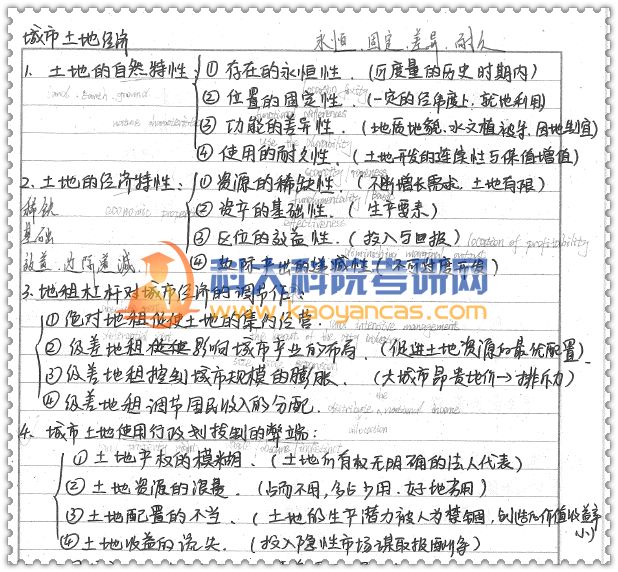 城市土地经济
永恒、固定、差异、耐久
1. 土地的自然特性
① 存在的永恒性.（历度量的历史时期内）
② 位置的固定性.（一定的经纬度上,就地利用）
③ 功能的差异性.（地质地貌,水文植被等,因地制宜）
④ 使用的耐久性.（土地开发的连续性与保值增值）
2. 土地的经济特性:
① 资源的稀缺性.（不断增长需求,土地有限）
稀缺
② 资产的基础性.（生产要素）
基础
③ 区位的效益性.（投入与回报）
location of profitability
效益、边际递减
④ 边际产出的递减性
科大科院考研网
www.kaoyancas.com
3. 地租杠杆对城市经济的调节作用:
① 绝对地租促使土地的集约经营.
② 级差地租影响城市产业的布局.（促进土地资源的最优配置）
③ 级差地租控制城市规模的膨胀.（大城市昂贵地价→排斥力）
④ 级差地租调节国民收入的分配.
4. 城市土地使用行政划拨制的弊端:
① 土地产权的模糊.（土地所有权无明确的法人代表）
② 土地资源的浪费.（占而不用,多占少用,好地劣用）
③ 土地配置的不当.（土地的生产潜力被人为禁锢,创造的价值收益率小）
④ 土地收益的流失.（投入隐性市场谋取报酬等）